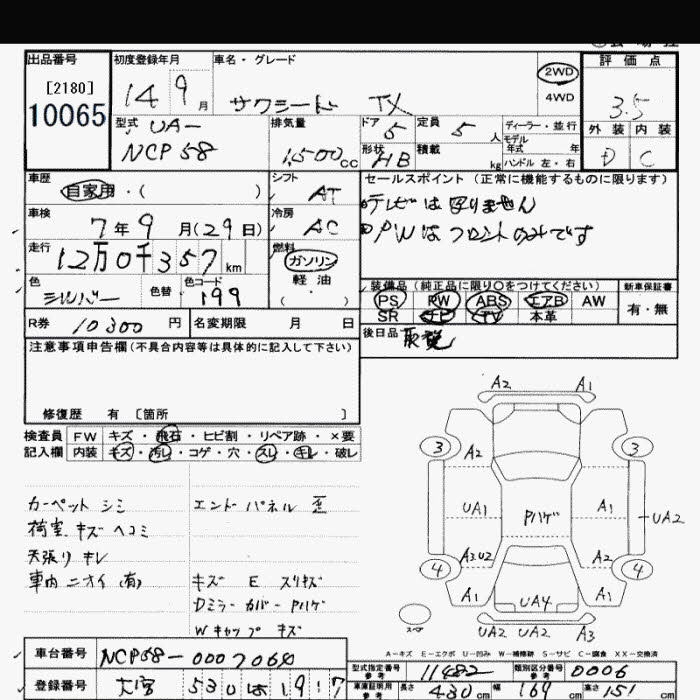 出品番号
[2180]
10065
初度登録年月
14 9月
車名・グレード
サクシード TX
2WD
4WD
評価点
3.5
外装 内装
D C
型式 UA-
NCP58
排気量
1,500cc
ドア 5
定員 5人
形状 HB
積載 kg
ディーラー・並行
モデル年式 年
ハンドル 左・右
車歴
自家用・( )
シフト
AT
セールスポイント(正常に機能するものに限ります)
テレビは写りません
PWはフロントのみです
車検
7年9月(29日)
冷房
AC
走行
12万0千357km
燃料
ガソリン
軽油
( )
色
シルバー
色替
色コード
199
装備品(純正品に限り○をつけてください)
PS PW ABS エアB AW
SR ナビ TV 本革
新車保証書
有・無
R券 10300円
名変期限 月 日
後日品 取説
注意事項申告欄(不具合内容等は具体的に記入して下さい)
修復歴 有 [箇所 ]
検査員記入欄
FW キズ・飛石・ヒビ割・リペア跡・×要
内装 キズ・汚レ・コゲ・穴・スレ・キレ・破レ
カーペット シミ
荷室 キズ ヘコミ
天張り キレ
車内ニオイ(有)
エンドパネル 歪
キズ E スリキズ
Dミラーカバー Pハゲ
Wキャップ キズ
A2 A1
3 3
A2
UA1 Pハゲ A1 UA2
A3U2 A2
4 4
A1 UA4 A1
UA2 UA2 A3
A-キズ E-エクボ U-凹み W-補修跡 S-サビ C-腐食 XX-交換済
車台番号 NCP58-0007064
登録番号 大宮 530 は 1917
型式指定番号 参考 11482
類別区分番号 参考 0006
車庫証明用 参考 長さ 430cm 幅 169cm 高さ 151cm